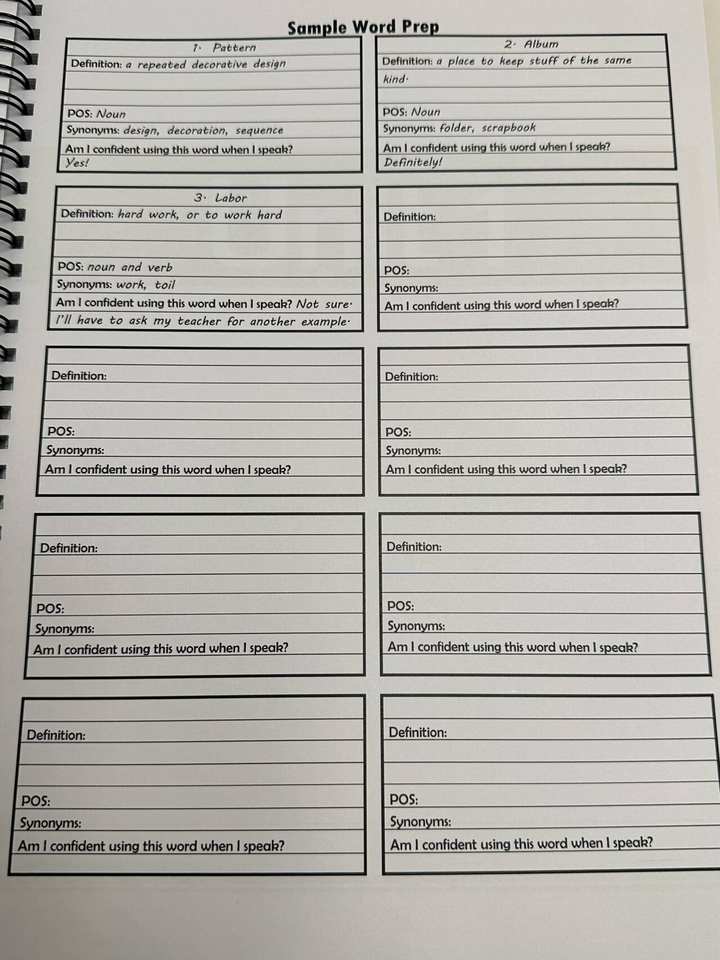 Sample Word Prep
1. Pattern
Definition: a repeated decorative design
POS: Noun
Synonyms: design, decoration, sequence
Am I confident using this word when I speak?
Yes!
2. Album
Definition: a place to keep stuff of the same
kind.
POS: Noun
Synonyms: folder, scrapbook
Am I confident using this word when I speak?
Definitely!
3. Labor
Definition: hard work, or to work hard
POS: noun and verb
Synonyms: work, toil
Am I confident using this word when I speak? Not sure.
I'll have to ask my teacher for another example.
Definition:
POS:
Synonyms:
Am I confident using this word when I speak?
Definition:
POS:
Synonyms:
Am I confident using this word when I speak?
Definition:
POS:
Synonyms:
Am I confident using this word when I speak?
Definition:
POS:
Synonyms:
Am I confident using this word when I speak?
Definition:
POS:
Synonyms:
Am I confident using this word when I speak?
Definition:
POS:
Synonyms:
Am I confident using this word when I speak?
Definition:
POS:
Synonyms:
Am I confident using this word when I speak?